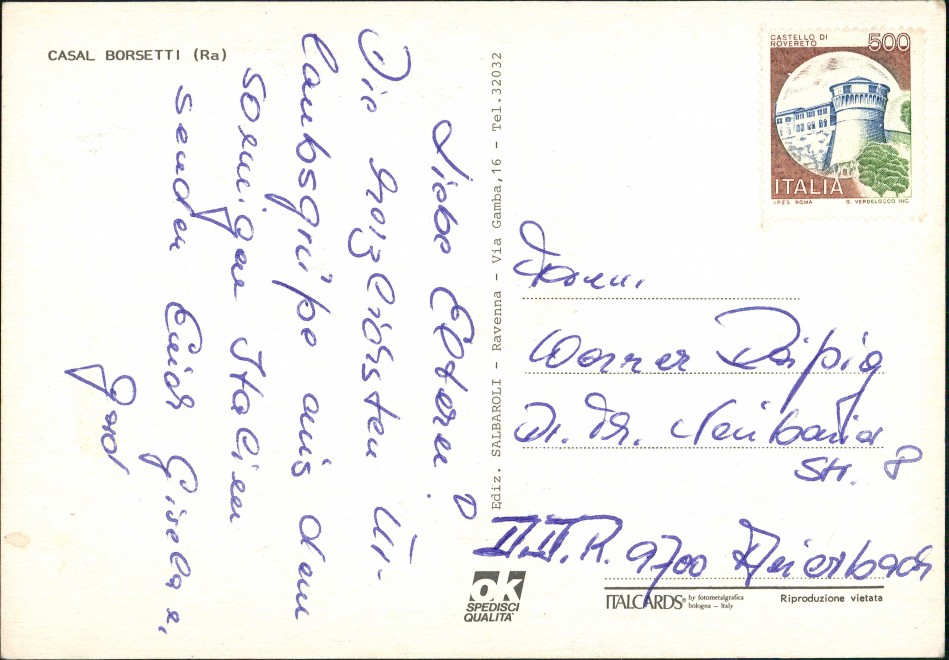 CASAL BORSETTI (Ra)
Liebe Eltern!
Die herzlichsten Ur-
laubsgrüße aus dem
sonnigen Italien
senden Euch Gisela u.
Gerd
Ediz. SALBAROLI - Ravenna - Via Gamba, 16 - Tel. 32032
CASTELLO DI
ROVERETO
500
ITALIA
I.P.Z.S. ROMA
G. VERDELOCCO INC.
Werner
Dr. Th. Neubauer
Str. 8
D.D.R. 9700 Auerbach
ok
SPEDISCI
QUALITA'
ITALCARDS® by fotometalgrafica
bologna - Italy
Riproduzione vietata